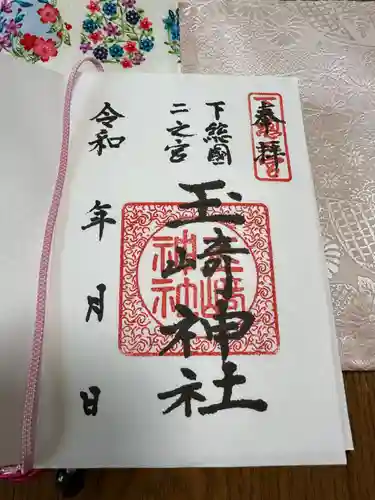 奉拝
下総國
二之宮
玉崎神社
玉崎
神社
令和 年 月 日